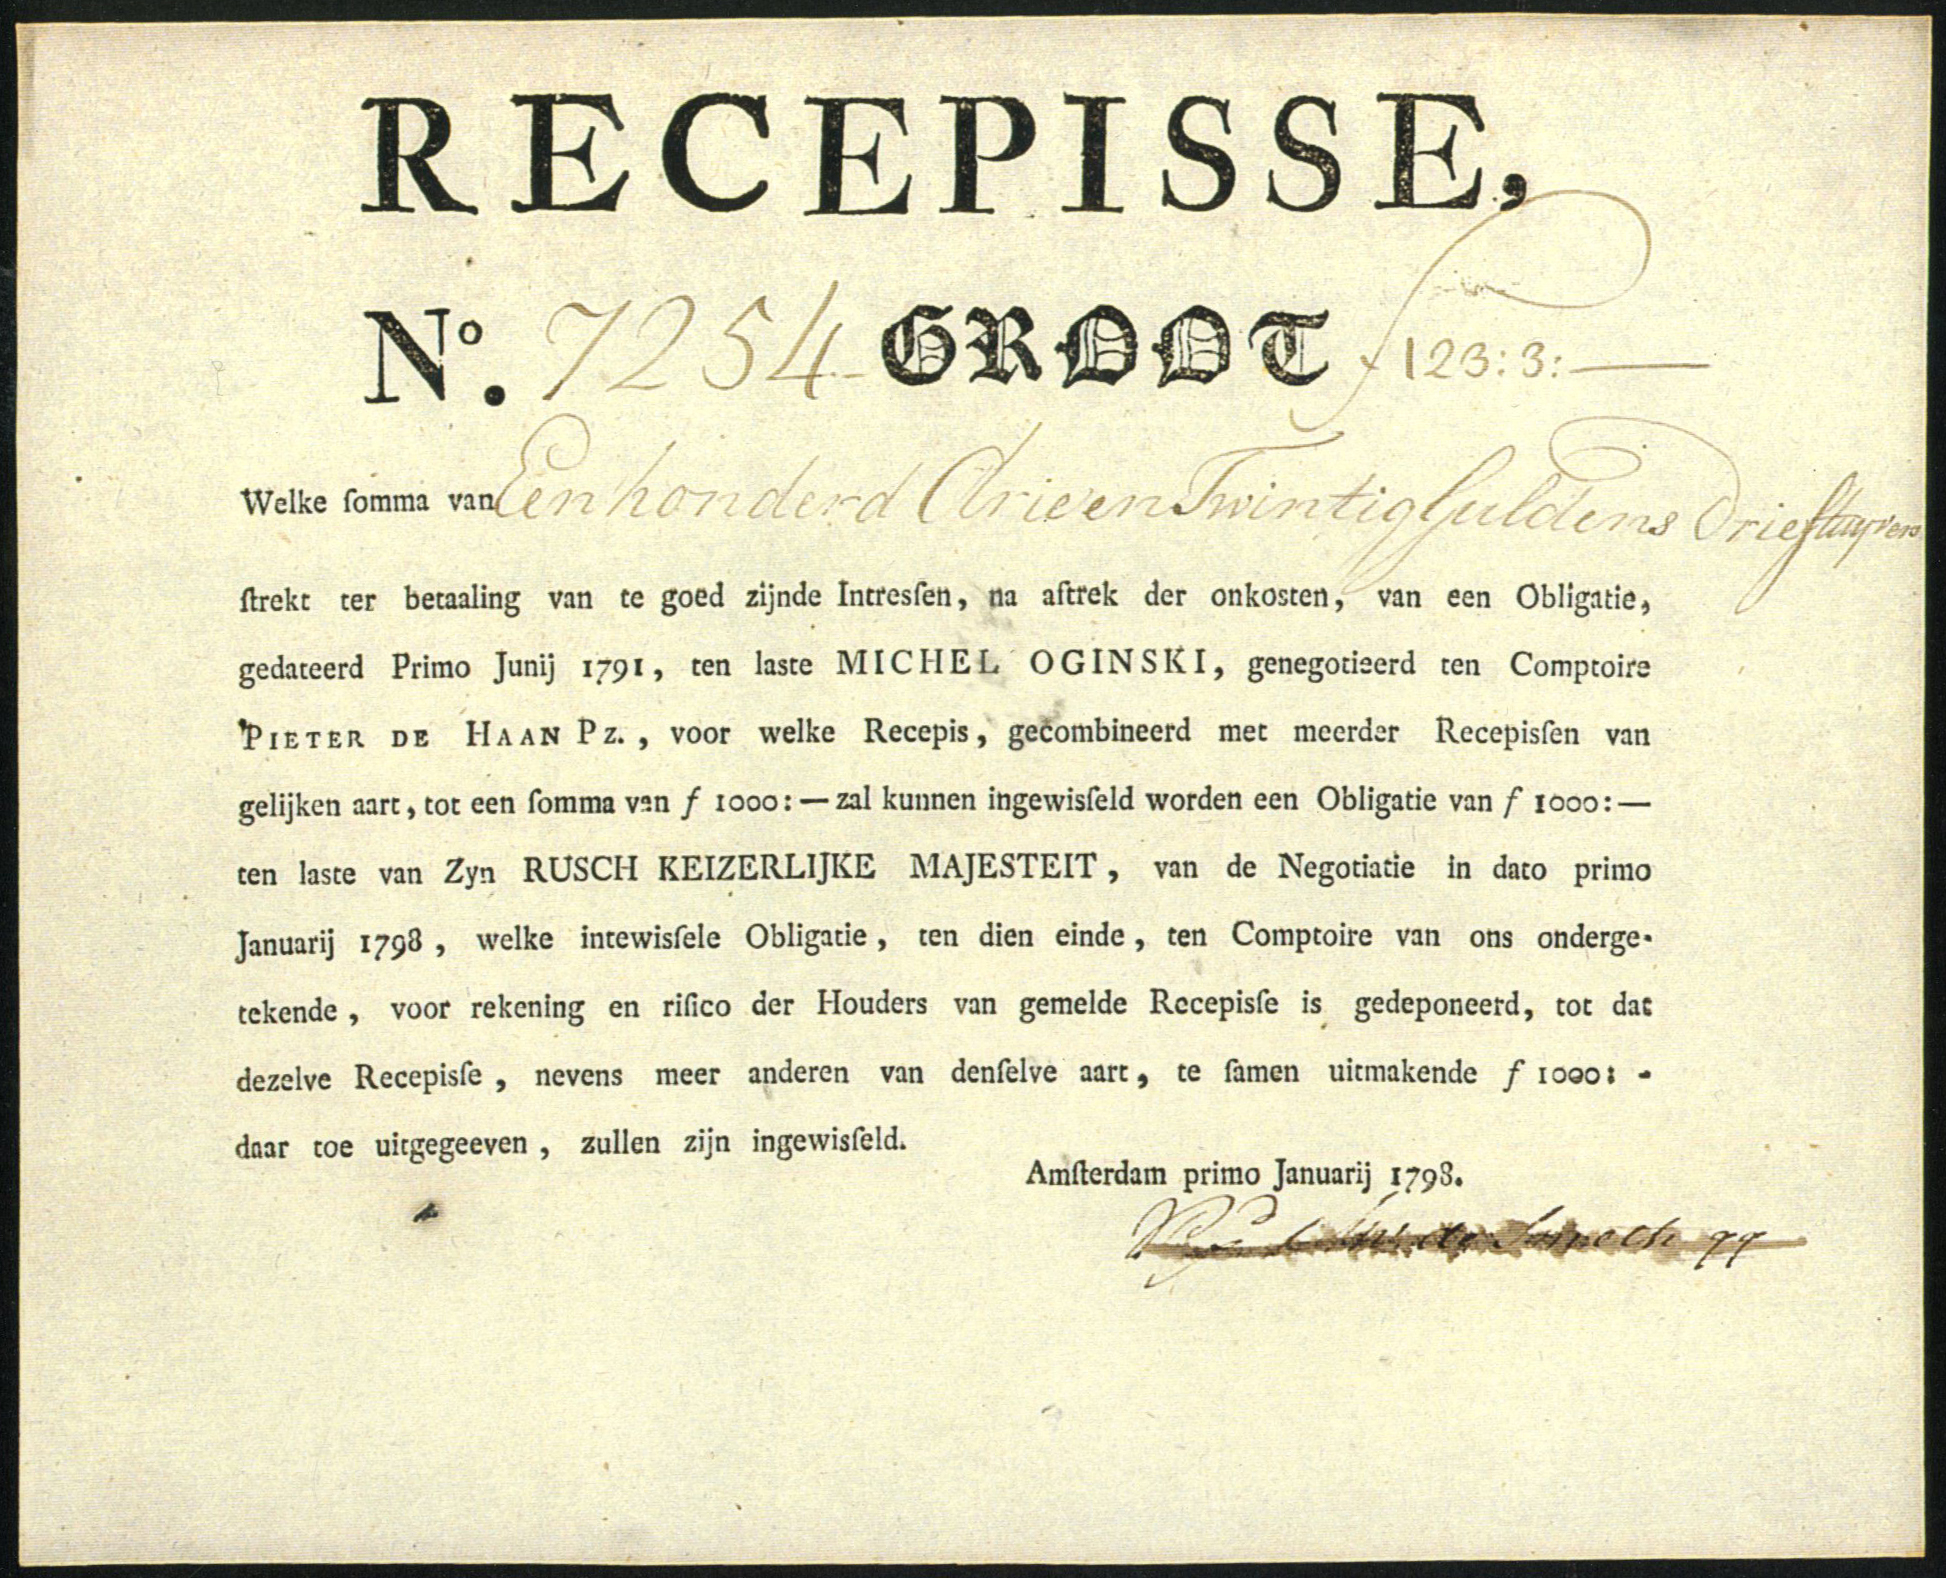 RECEPISSE,
No. 7254 GROOT f 123:3:—
Welke ſomma van Eenhonderd drie en Twintig Guldens Drie ſtuyvers
ſtrekt ter betaaling van te goed zijnde Intresſen, na aftrek der onkosten, van een Obligatie,
gedateerd Primo Junij 1791, ten laste MICHEL OGINSKI, genegotieerd ten Comptoire
PIETER DE HAAN Pz., voor welke Recepis, gecombineerd met meerder Recepisſen van
gelijken aart, tot een ſomma van ƒ 1000:— zal kunnen ingewisſeld worden een Obligatie van ƒ 1000:—
ten laste van Zyn RUSCH KEIZERLIJKE MAJESTEIT, van de Negotiatie in dato primo
Januarij 1798, welke intewisſele Obligatie, ten dien einde, ten Comptoire van ons onderge-
tekende, voor rekening en riſico der Houders van gemelde Recepisſe is gedeponeerd, tot dat
dezelve Recepisſe, nevens meer anderen van denſelve aart, te ſamen uitmakende ƒ 1000: -
daar toe uitgegeeven, zullen zijn ingewisſeld.
Amſterdam primo Januarij 1798.
qq